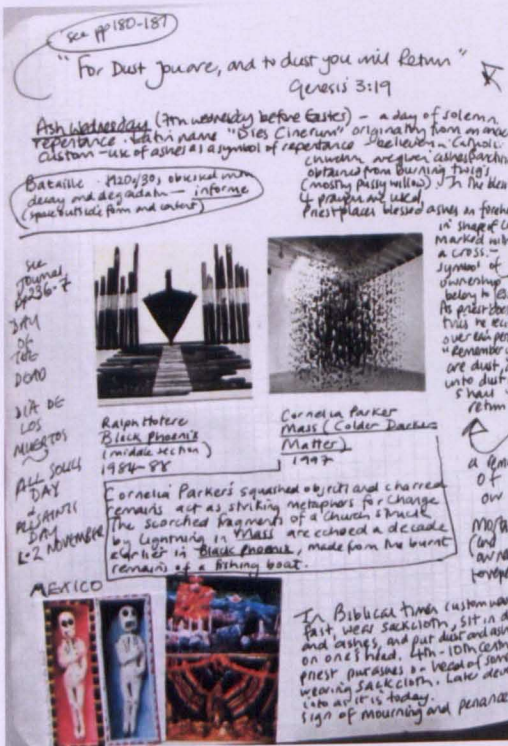 see pp180-187
"For Dust you are, and to dust you will Return"
Genesis 3:19
Ash Wednesday (7th wednesday before Easter) - a day of solemn
repentance. Latin name "Dies Cinerum" originating from an
custom - use of ashes as a symbol of repentance - believers in Catholic
church are given ashes
obtained from burning twigs
(mostly pussy willow). In the
4 prayers are used
Priest places blessed ashes on
in shape of
marked
a cross -
symbol of
ownership
belong to
As priest does
this he
over each
"Remember
are dust,
unto dust
shall
return
Bataille - 1920s/30s, obsessed with
decay and degradation - informe
(space outside form and content)
see
Journal
pp236-7
DAY
OF
THE
DEAD
DIA DE
LOS
MUERTOS
ALL SOULS
DAY
&
ALL SAINTS
DAY
1-2 NOVEMBER
Ralph Hotere
Black Phoenix
(middle section)
1984-88
Cornelia Parker
Mass (Colder Darker
Matter)
1997
Cornelia Parker's squashed objects and charred
remains act as striking metaphors for change
The scorched fragments of a church struck
by lightning in Mass are echoed a decade
earlier in Black Phoenix, made from the burnt
remains of a fishing boat.
a
of
our
(and
MEXICO
In Biblical times custom was
fast, wear sackcloth, sit in
and ashes, and put dust and
on one's head. 4th-10th
priest put ashes on head of
wearing sackcloth. Later
into as it is today.
sign of mourning and penance